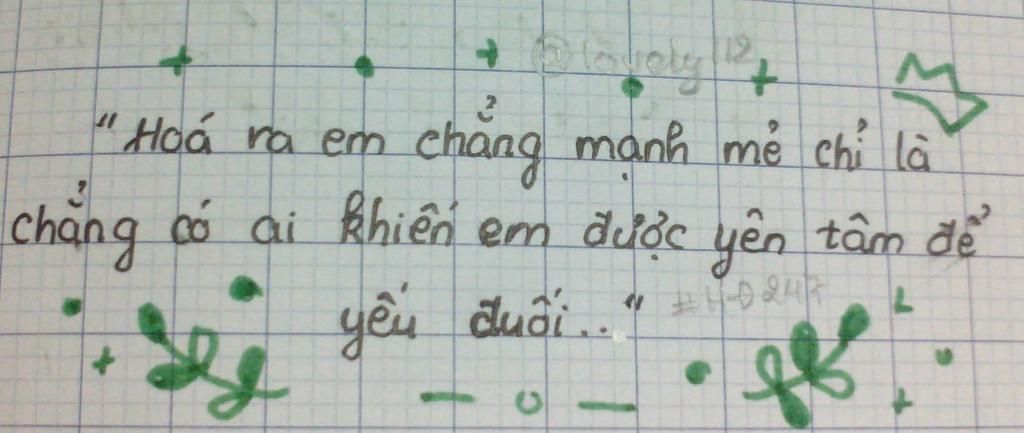 @lovely 112
"Hoá ra em chẳng mạnh mẻ chỉ là
chẳng có ai khiến em được yên tâm để
yếu đuối.."
#H-Đ247